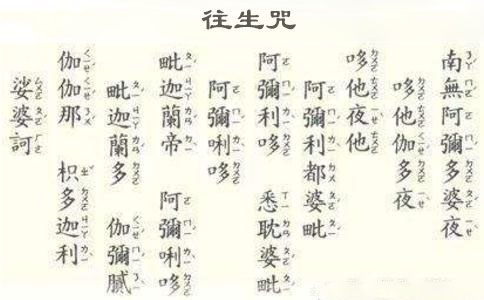 往生咒
南無阿彌多婆夜
哆他伽多夜
哆他夜他
阿彌利都婆毗
阿彌唎哆 悉耽婆毗
阿彌唎哆
毗迦蘭帝 阿彌唎哆
毗迦蘭多 伽彌膩
伽伽那 枳多迦利
娑婆訶